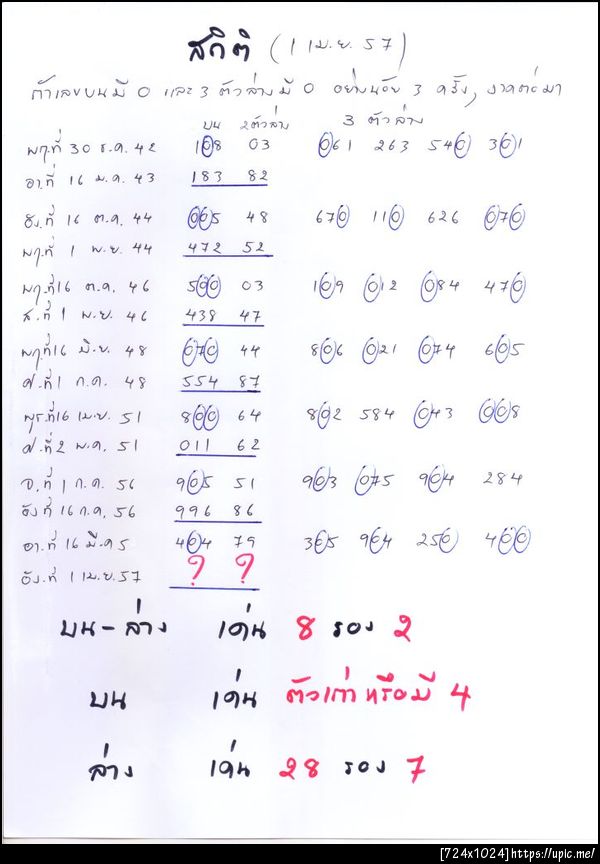 สถิติ (1 เม.ย. 57)
ถ้าเลขบนมี 0 และ 3 ตัวล่างมี 0 อย่างน้อย 3 ครั้ง, งวดต่อมา
บน 2ตัวล่าง 3 ตัวล่าง
พฤ.ที่ 30 ธ.ค. 42 108 03 061 263 540 301
อา.ที่ 16 ม.ค. 43 183 82
อัง.ที่ 16 ต.ค. 44 005 48 670 110 626 070
พฤ.ที่ 1 พ.ย. 44 472 52
พฤ.ที่ 16 ต.ค. 46 500 03 109 012 084 470
ส.ที่ 1 พ.ย. 46 438 47
พฤ.ที่ 16 มิ.ย. 48 070 44 806 021 074 605
ศ.ที่ 1 ก.ค. 48 554 87
พุธ.ที่ 16 เม.ย. 51 800 64 802 584 043 008
ศ.ที่ 2 พ.ค. 51 011 62
จ.ที่ 1 ก.ค. 56 905 51 903 075 904 284
อัง.ที่ 16 ก.ค. 56 996 86
อา.ที่ 16 มี.ค 5 404 79 305 904 250 400
อัง.ที่ 1 เม.ย. 57 ? ?
บน-ล่าง เด่น 8 รอง 2
บน เด่น ตัวเก่าหรือมี 4
ล่าง เด่น 28 รอง 7
[724x1024]https://upic.me/